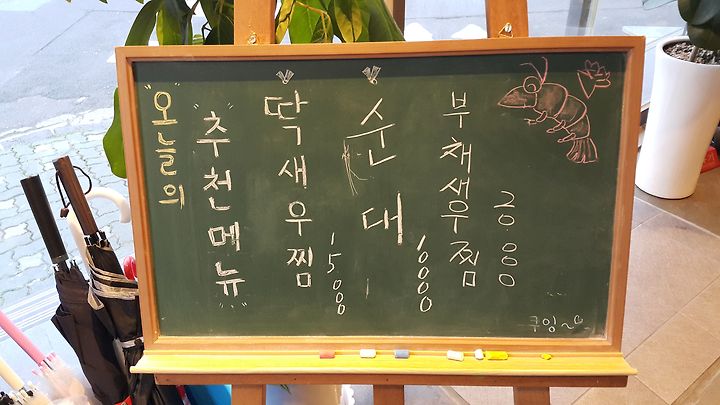 "오늘의
"추천메뉴"
딱새우찜
15000
순대
10000
부채새우찜
20.000
쿠잉~